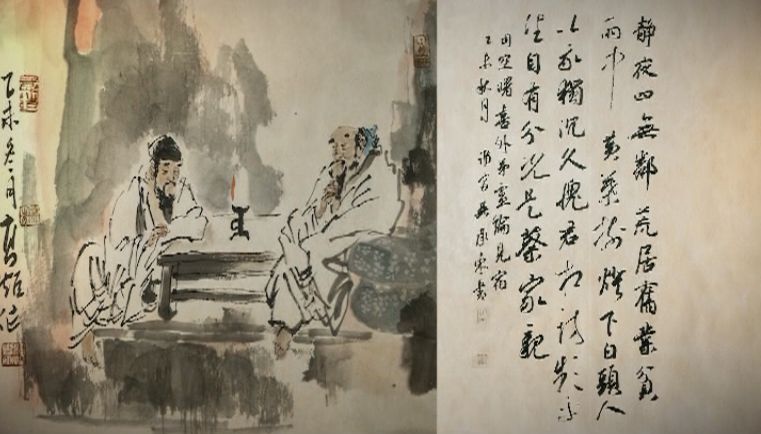 靜夜四無鄰荒居舊業貧
雨中黃葉樹燈下白頭人
以我獨沉久愧君相訪頻平
生自有分況是蔡家親
司空曙喜外弟盧綸見宿
乙未秋月書
乙未冬月作